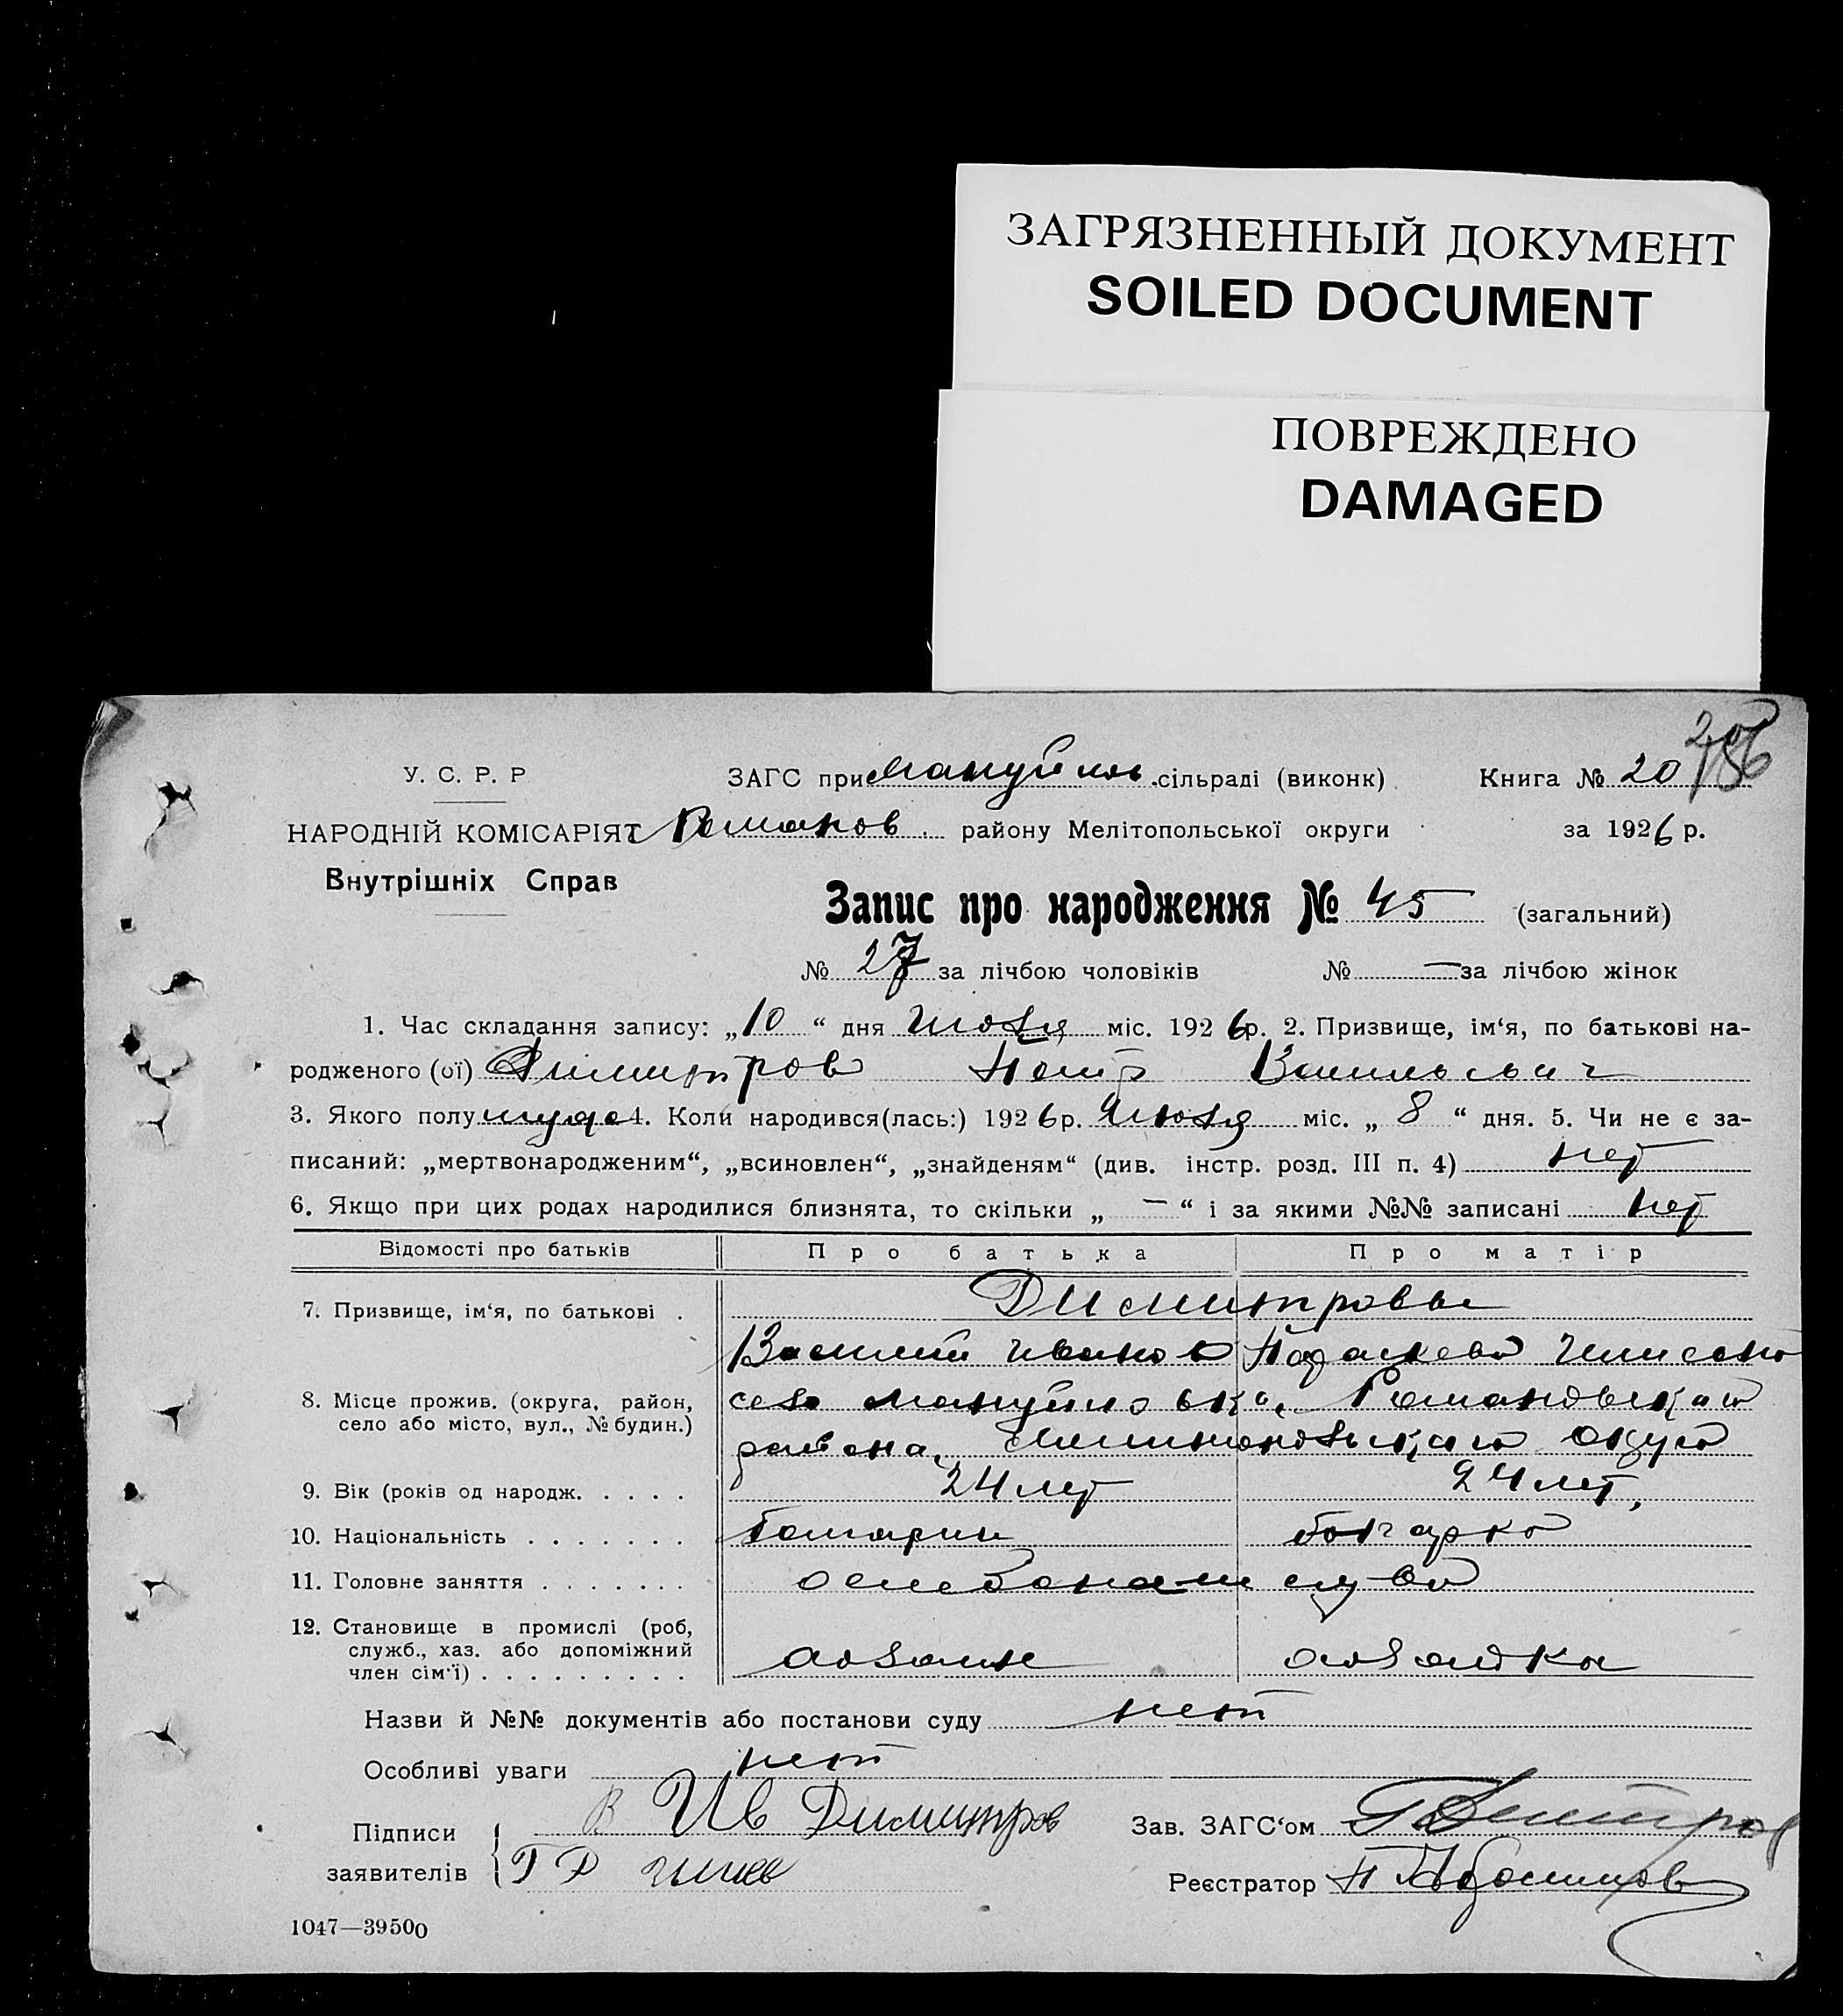 ЗАГРЯЗНЕННЫЙ ДОКУМЕНТ
SOILED DOCUMENT
ПОВРЕЖДЕНО
DAMAGED
У. С. Р. Р
ЗАГС при Мануйлов. сільраді (виконк) Книга № 20
НАРОДНІЙ КОМІСАРІЯТ Романов. району Мелітопольської округи за 1926 р.
Внутрішніх Справ
Запис про народження № 45 (загальний)
№ 27 за лічбою чоловіків № — за лічбою жінок
1. Час складання запису: „10“ дня июля міс. 1926 р. 2. Призвище, ім‘я, по батькові на-
родженого (ої) Димитров Петр Васильевич
3. Якого полу мужс 4. Коли народився(лась:) 1926 р. Июля міс. „8“ дня. 5. Чи не є за-
писаний: „мертвонародженим“, „всиновлен“, „знайденям“ (див. інстр. розд. III п. 4) нет
6. Якщо при цих родах народилися близнята, то скільки „—“ і за якими №№ записані нет
Відомості про батьків Про батька Про матір
7. Призвище, ім‘я, по батькові . Димитровы
Василий Иванов
8. Місце прожив. (округа, район, село Мануйловка, Романовскаго
село або місто, вул., № будин.)
района, Мелитопольскаго округа
9. Вік (років од народж. . . . . 24 лет 24 лет,
10. Національність . . . . . . . болгарин болгарка
11. Головне заняття . . . . . . .
12. Становище в промислі (роб,
служб., хаз. або допоміжний
член сім‘ї) . . . . . . . . . хозяин хозяйка
Назви й №№ документів або постанови суду нет
Особливі уваги нет
Підписи В Ив Димитров Зав. ЗАГС‘ом
заявителів Реєстратор
1047—39500